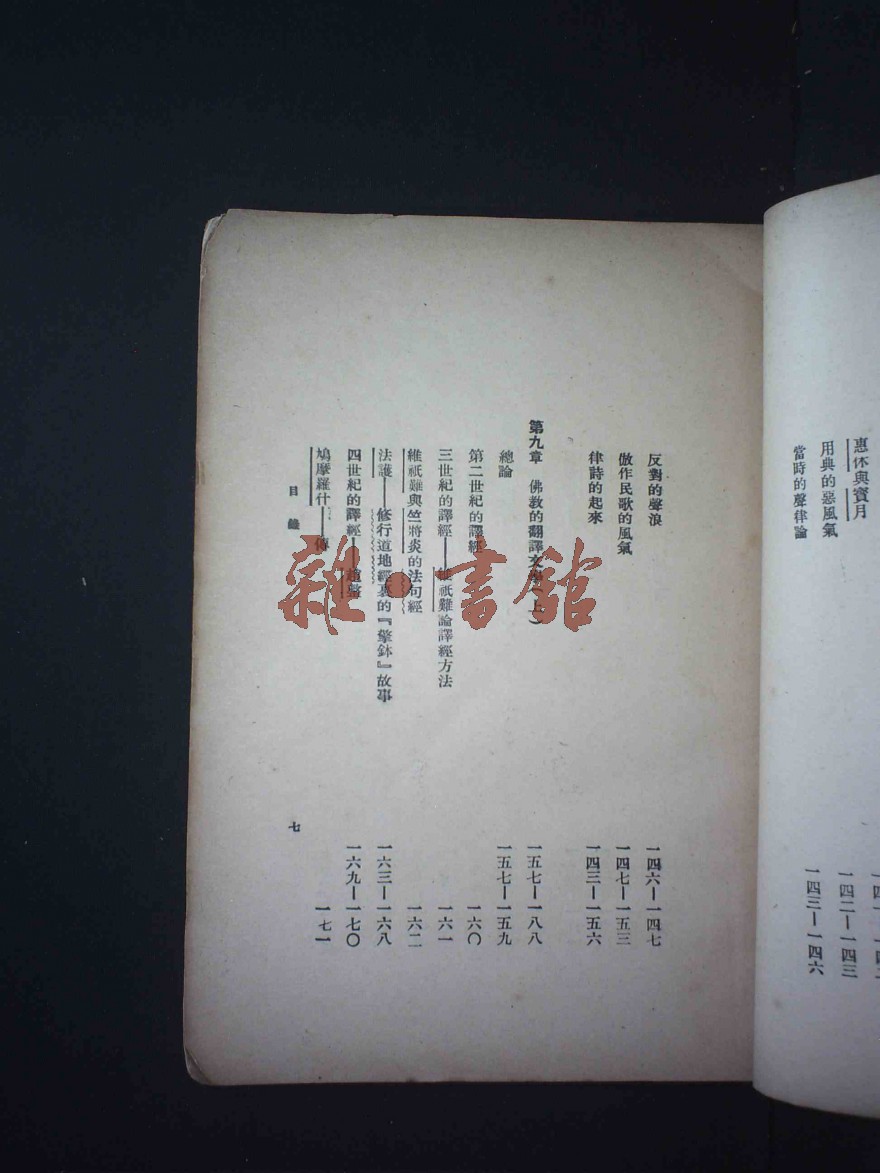 惠休與寶月
用典的惡風氣 一四二—一四三
當時的聲律論 一四三—一四六
反對的聲浪 一四六—一四七
倣作民歌的風氣 一四七—一五三
律詩的起來 一四三—一五六
第九章 佛教的翻譯文學(上) 一五七—一八八
總論 一五七—一五九
第二世紀的譯經 一六〇
三世紀的譯經——維祇難論譯經方法 一六一
維祇難與竺將炎的法句經 一六二
法護——修行道地經裏的『擎鉢』故事 一六三—一六八
四世紀的譯經——趙整 一六九—一七〇
鳩摩羅什——傳 一七一
目錄
七
雜·書館